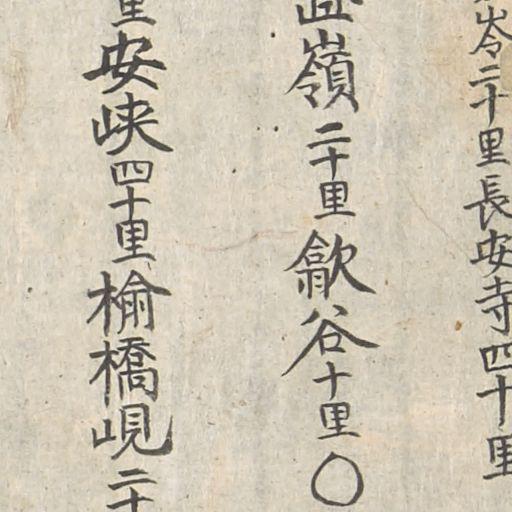 岺二十里長安寺四十里
嶺二十里歙谷十里〇
里安峽四十里楡橋峴二十